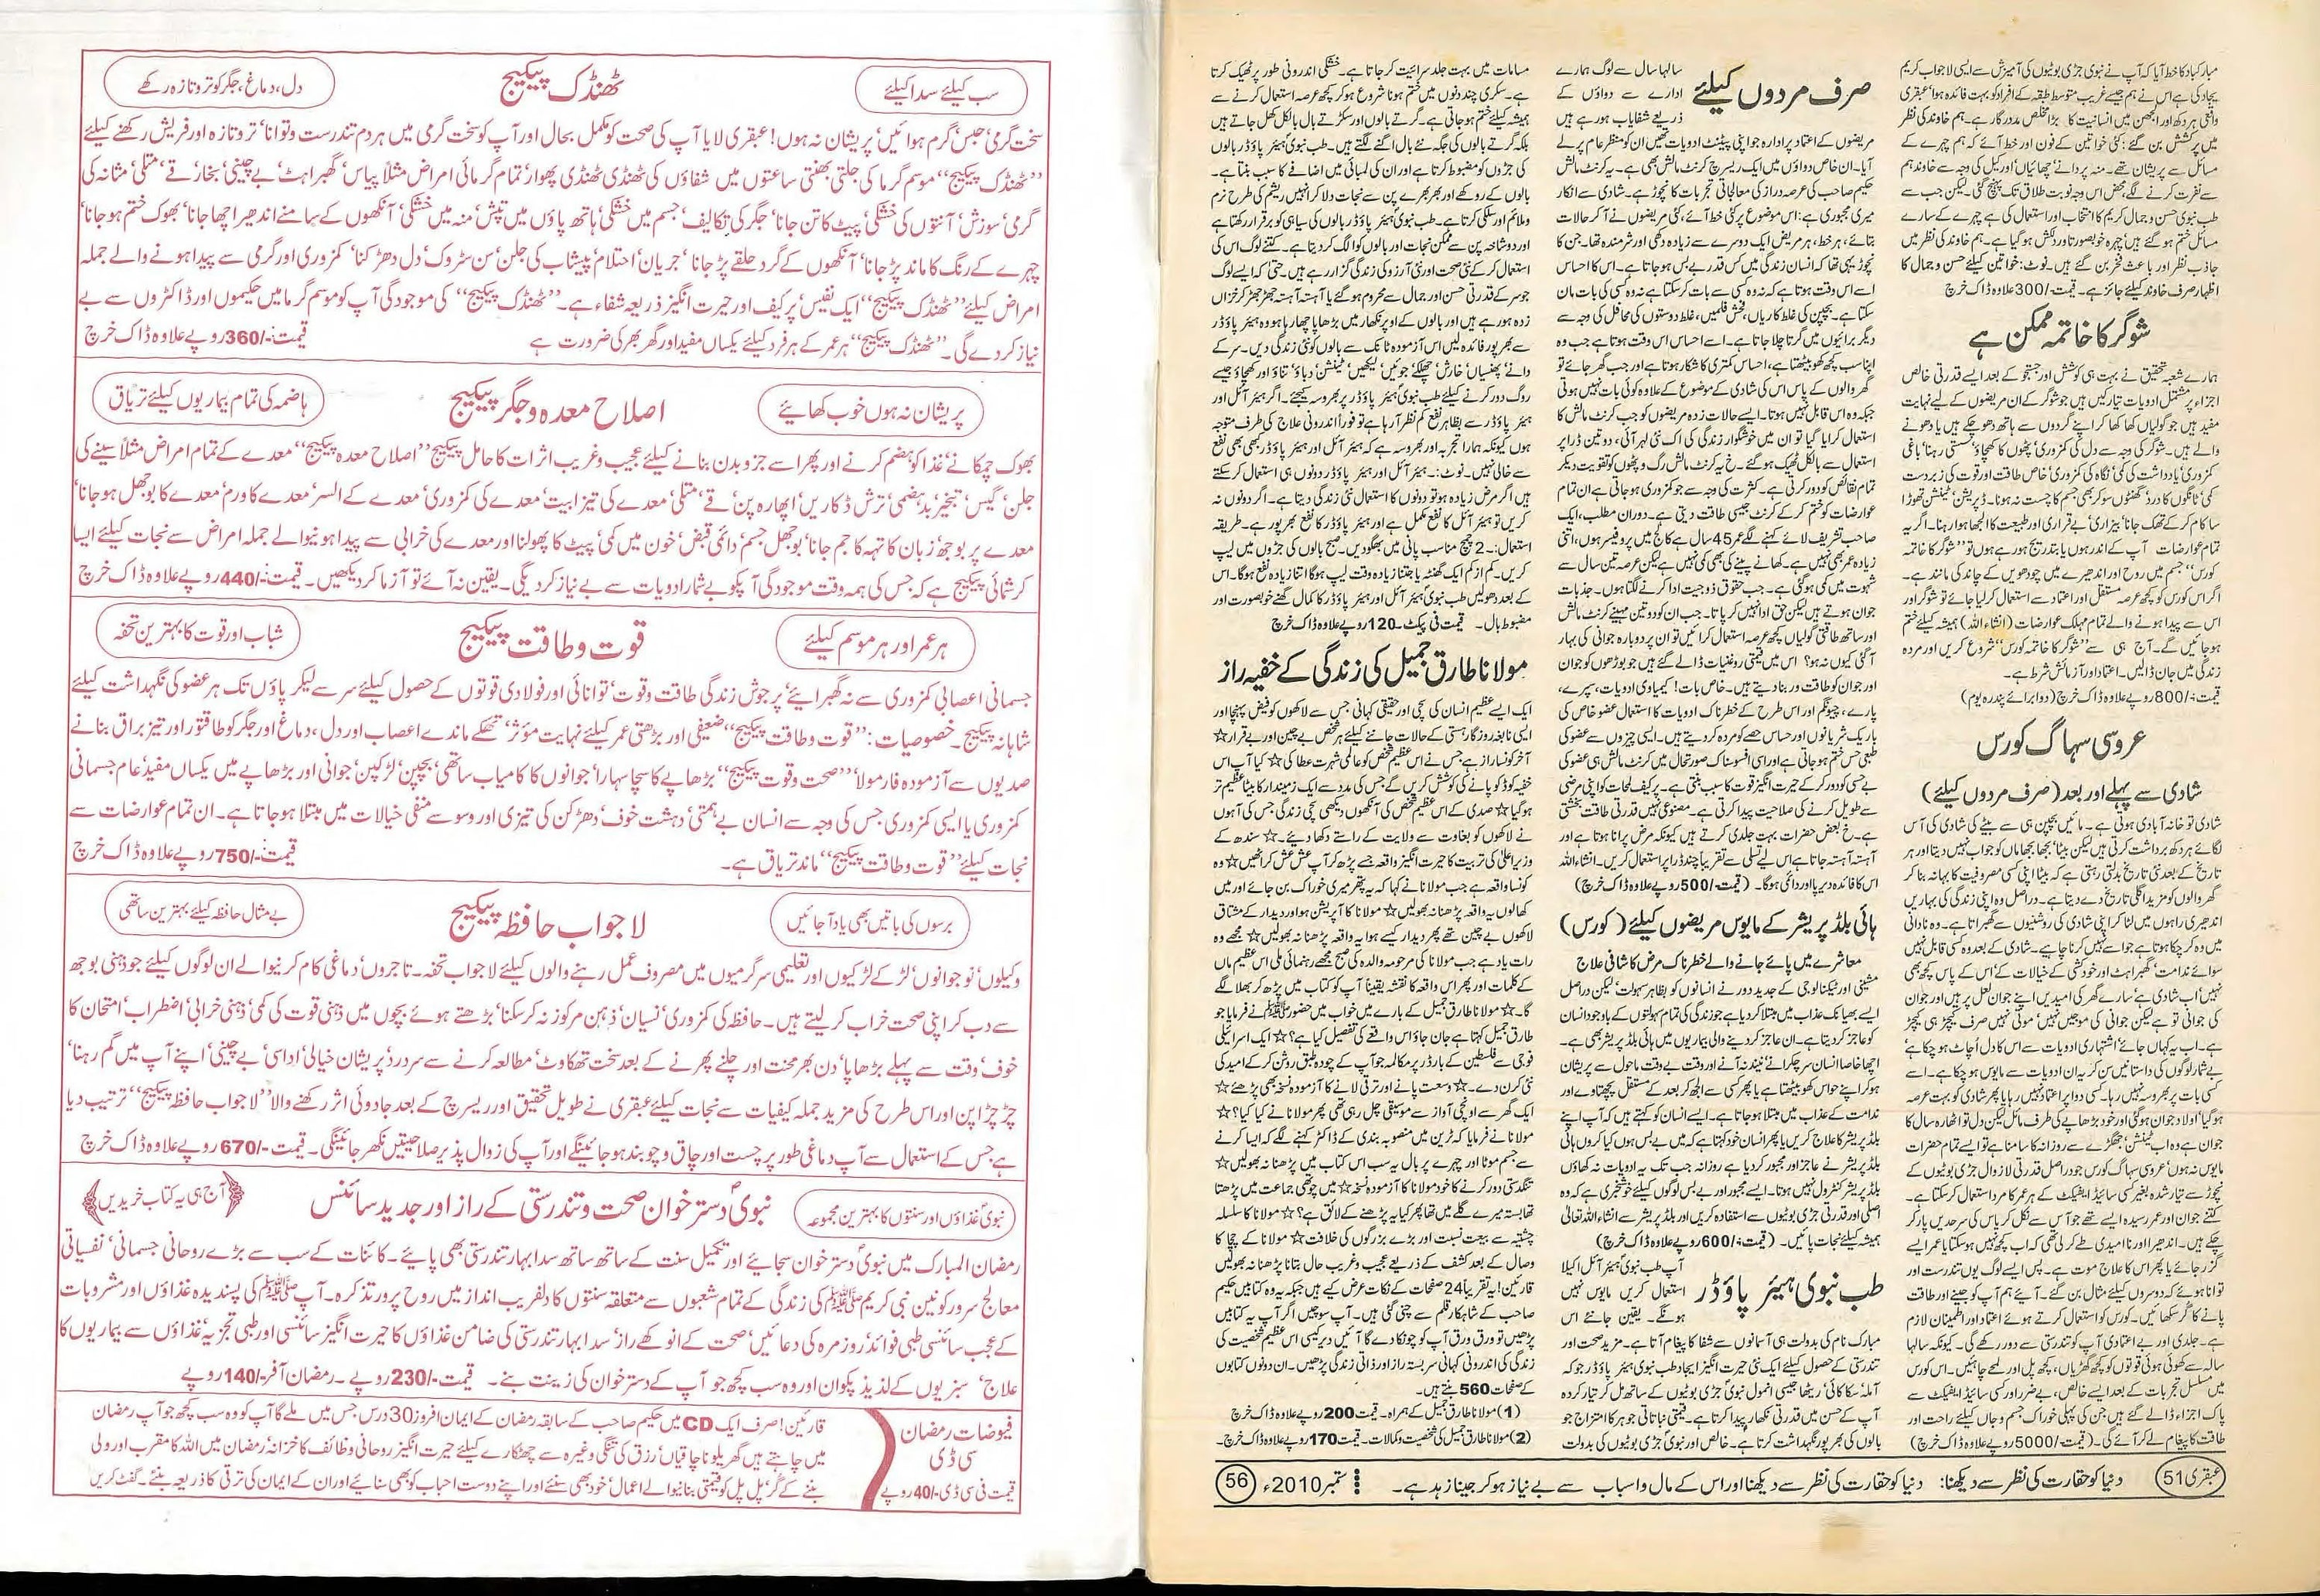 مبارکباد کا خط آیا کہ آپ نے نبوی جڑی بوٹیوں کی آمیزش سے ایسی لا جواب کریم
ایجاد کی ہے اس نے ہم جیسے غریب متوسط طبقہ کے افراد کو بہت فائدہ ہوا عبقری
واقعی ہر دکھ اور الجھن میں انسانیت کا بڑا مخلص مددگار ہے۔ ہم خاوند کی نظر
میں پرکشش بن گئے: کئی خواتین کے فون اور خط آئے کہ ہم چہرے کے
مسائل سے پریشان تھے۔ منہ پر دانے چھائیاں اور کیل کی وجہ سے خاوند ہم
سے نفرت کرنے لگے، محض اس وجہ نوبت طلاق تک پہنچ گئی۔ لیکن جب سے
طب نبوی حسن و جمال کریم کا انتخاب اور استعمال کی ہے چہرے کے سارے
مسائل ختم ہو گئے ہیں چہرہ خوبصورت اور دلکش ہو گیا ہے۔ ہم خاوند کی نظر میں
جاذب نظر اور باعث فخر بن گئے ہیں۔ نوٹ: خواتین کیلئے حسن و جمال کا
اظہار صرف خاوند کیلئے جائز ہے۔ قیمت/-300 علاوہ ڈاک خرچ
شوگر کا خاتمہ ممکن ہے
ہمارے شعبہ تحقیق نے بہت ہی کوشش اور جستجو کے بعد ایسے قدرتی خالص
اجزاء پر مشتمل ادویات تیار کیں ہیں جو شوگر کے ان مریضوں کے لیے نہایت
مفید ہیں جو گولیاں کھا کھا کر اپنے گردوں سے ہاتھ دھو چکے ہیں یا دھونے
والے ہیں۔ شوگر کی وجہ سے دل کی کمزوری' پٹھوں کا کھچاؤ' سستی رہنا' باغی
کمزوری' یادداشت کی کمی' نگاہ کی کمزوری' خاص طاقت اور قوت کی زبردست
کمی' ٹانگوں کا درد' گھنٹوں سو کر بھی جسم کا چست نہ ہونا۔ ڈپریشن' ٹینشن' تھوڑا
سا کام کر کے تھک جانا' بیزاری' بے قراری اور طبیعت کا الجھا ہوا رہنا۔ اگر یہ
تمام عوارضات آپ کے اندر ہوں یا بتدریج ہو رہے ہوں تو "شوگر کا خاتمہ
کورس" جسم میں روح اور اندھیرے میں چودھویں کے چاند کی مانند ہے۔
اگر اس کورس کو کچھ عرصہ مستقل اور اعتماد سے استعمال کر لیا جائے تو شوگر اور
اس سے پیدا ہونے والے تمام مہلک عوارضات (انشاء اللہ) ہمیشہ کیلئے ختم
ہو جائیں گے۔ آج ہی سے "شوگر کا خاتمہ کورس" شروع کریں اور مردہ
زندگی میں جان ڈالیں۔ اعتماد اور آزمائش شرط ہے۔
قیمت/-800 روپے علاوہ ڈاک خرچ (دوا برائے پندرہ یوم)
عروسی سہاگ کورس
شادی سے پہلے اور بعد (صرف مردوں کیلئے)
شادی تو خانہ آبادی ہوتی ہے۔ مائیں بچپن ہی سے بیٹے کی شادی کی آس
لگائے ہر دکھ برداشت کرتی ہیں لیکن بیٹا' بجھا بجھا ماں کو جواب نہیں دیتا اور ہر
تاریخ کے بعد نئی تاریخ بدلتی رہتی ہے کہ بیٹا اپنی کسی مصروفیت کا بہانہ بنا کر
گھر والوں کو مزید اگلی تاریخ دے دیتا ہے۔ دراصل وہ اپنی زندگی کی بہاریں
اندھیری راہوں میں لٹا کر اپنی شادی کی روشنیوں سے گھبراتا ہے۔ وہ نادانی
میں وہ کر چکا ہوتا ہے جو اسے نہیں کرنا چاہیے۔ شادی کے بعد وہ کسی قابل نہیں
سوائے ندامت' گھبراہٹ اور خودکشی کے خیالات کے' اس کے پاس کچھ بھی
نہیں' اب شادی ہے' سارے گھر کی امیدیں اپنے جوان لعل پر ہیں اور جوان
کی جوانی تو ہے لیکن جوانی کی موجیں نہیں' موتی نہیں صرف کیچڑ ہی کیچڑ
ہے۔ اب یہ کہاں جائے' اشتہاری ادویات سے اس کا دل اُچاٹ ہو چکا ہے'
بے شمار لوگوں کی داستانیں سن کر یہ ان ادویات سے مایوس ہو چکا ہے۔ اسے
کسی بات پر بھروسہ نہیں رہا۔ کسی دوا پر اعتماد نہیں رہا یا پھر شادی کو بہت عرصہ
ہو گیا' اولاد جوان ہو گئی اور خود بڑھاپے کی طرف مائل لیکن دل تو اٹھارہ سال کا
جوان ہے وہ اب ٹینشن' جھگڑے سے روزانہ کا سامنا ہے تو ایسے تمام حضرات
مایوس نہ ہوں' عروسی سہاگ کورس جو دراصل قدرتی لا زوال جڑی بوٹیوں کے
نچوڑ سے تیار شدہ بغیر کسی سائیڈ ایفیکٹ کے ہر عمر کا مرد استعمال کر سکتا ہے۔
کتنے جوان اور عمر رسیدہ ایسے تھے جو آس سے نکل کر یاس کی سرحدیں پار کر
چکے ہیں۔ اندھیرا اور نا امیدی طے کر لی تھی کہ اب کچھ نہیں ہو سکتا یا عمر ایسے
گزر جائے یا پھر اس کا علاج موت ہے۔ پس ایسے لوگ یوں تندرست اور
توانا ہوئے کہ دوسروں کیلئے مثال بن گئے۔ آیئے ہم آپ کو جینے اور طاقت
پانے کا گُر سکھائیں۔ کورس کو استعمال کرتے ہوئے اعتماد اور اطمینان لازم
ہے۔ جلدی اور بے اعتمادی آپ کو تندرستی سے دور رکھے گی۔ کیونکہ سالہا
سالہ سے کھوئی ہوئی قوتوں کو کچھ گھڑیاں، کچھ پل اور لمحے چاہئیں۔ اس کورس
میں مسلسل تجربات کے بعد ایسے خالص، بے ضرر اور کسی سائیڈ ایفیکٹ سے
پاک اجزاء ڈالے گئے ہیں جن کی پہلی خوراک جسم و جاں کیلئے راحت اور
طاقت کا پیغام لے کر آئے گی۔ (قیمت/-5000 روپے علاوہ ڈاک خرچ)
صرف مردوں کیلئے
سالہا سال سے لوگ ہمارے
ادارے سے دواؤں کے
ذریعے شفایاب ہو رہے ہیں
مریضوں کے اعتماد پر ادارہ جو اپنی پیٹنٹ ادویات تھیں ان کو منظر عام پر لے
آیا۔ ان خاص دواؤں میں ایک ریسرچ کرنٹ مالش بھی ہے۔ یہ کرنٹ مالش
حکیم صاحب کی عرصہ دراز کی معالجاتی تجربات کا نچوڑ ہے۔ شادی سے انکار
میری مجبوری ہے: اس موضوع پر کئی خط آئے، کئی مریضوں نے آ کر حالات
بتائے، ہر خط، ہر مریض ایک دوسرے سے زیادہ دکھی اور شرمندہ تھا۔ جن کا
نچوڑ یہی تھا کہ انسان زندگی میں کس قدر بے بس ہو جاتا ہے۔ اس کا احساس
اسے اس وقت ہوتا ہے کہ نہ وہ کسی سے بات کر سکتا ہے نہ وہ کسی کی بات مان
سکتا ہے۔ بچپن کی غلط کاریاں، فحش فلمیں، غلط دوستوں کی محافل کی وجہ سے
دیگر برائیوں میں گرتا چلا جاتا ہے۔ اسے احساس اس وقت ہوتا ہے جب وہ
اپنا سب کچھ کھو بیٹھتا ہے، احساس کمتری کا شکار ہوتا ہے اور جب گھر جائے تو
گھر والوں کے پاس اس کی شادی کے موضوع کے علاوہ کوئی بات نہیں ہوتی
جبکہ وہ اس قابل نہیں ہوتا۔ ایسے حالات زدہ مریضوں کو جب کرنٹ مالش کا
استعمال کرایا گیا تو ان میں خوشگوار زندگی کی اک نئی لہر آئی، دو تین ڈراپر
استعمال سے بالکل ٹھیک ہو گئے۔ خ یہ کرنٹ مالش رگ و پٹھوں کو تقویت دیکر
تمام نقائص کو دور کرتی ہے۔ کثرت کی وجہ سے جو کمزوری ہو جاتی ہے ان تمام
عوارضات کو ختم کر کے کرنٹ جیسی طاقت دیتی ہے۔ دوران مطلب، ایک
صاحب تشریف لائے کہنے لگے عمر 45 سال ہے کالج میں پروفیسر ہوں، اتنی
زیادہ عمر بھی نہیں ہے۔ کھانے پینے کی بھی کمی نہیں ہے لیکن عرصہ تین سال سے
شہوت میں کمی ہو گئی ہے۔ جب حقوق زوجیت ادا کرنے لگتا ہوں۔ جذبات
جوان ہوتے ہیں لیکن حق ادا نہیں کر پاتا۔ جب ان کو دو تین مہینے کرنٹ مالش
اور ساتھ طاقتی گولیاں کچھ عرصہ استعمال کرائیں تو ان پر دوبارہ جوانی کی بہار
آ گئی کیوں نہ ہو؟ اس میں قیمتی روغنیات ڈالے گئے ہیں جو بوڑھوں کو جوان
اور جوان کو طاقت ور بنا دیتے ہیں۔ خاص بات! کیمیاوی ادویات، سپرے،
پارے، چیونگم اور اس طرح کے خطرناک ادویات کا استعمال عضو خاص کی
باریک شریانوں اور حساس حصے کو مردہ کر دیتے ہیں۔ ایسی چیزوں سے عضو کی
طبعی حس ختم ہو جاتی ہے اور اسی افسوسناک صورتحال میں کرنٹ مالش ہی عضو کی
بے حسی کو دور کر کے حیرت انگیز قوت کا سبب بنتی ہے۔ پر کیف لمحات کو اپنی مرضی
سے طویل کرنے کی صلاحیت پیدا کرتی ہے۔ مصنوعی نہیں قدرتی طاقت بخشتی
ہے۔ خ بعض حضرات بہت جلدی کرتے ہیں کیونکہ مرض پرانا ہوتا ہے اور
آہستہ آہستہ جاتا ہے اس لیے تسلی سے تقریباً چند ڈراپر استعمال کریں۔ انشاء اللہ
اس کا فائدہ دیرپا اور دائمی ہوگا۔ (قیمت/-500 روپے علاوہ ڈاک خرچ)
ہائی بلڈ پریشر کے مایوس مریضوں کیلئے (کورس)
معاشرے میں پائے جانے والے خطرناک مرض کا شافی علاج
مشینی اور ٹیکنالوجی کے جدید دور نے انسانوں کو بظاہر سہولت' لیکن دراصل
ایسے بھیانک عذاب میں مبتلا کر دیا ہے جو زندگی کی تمام سہولتوں کے باوجود انسان
کو عاجز کر دیتا ہے۔ ان عاجز کر دینے والی بیماریوں میں ہائی بلڈ پریشر بھی ہے۔
اچھا خاصا انسان سر چکرانے' نیند نہ آنے اور وقت بے وقت ماحول سے پریشان
ہو کر اپنے حواس کھو بیٹھتا ہے یا پھر کسی سے الجھ کر بعد کے مستقل پچھتاوے اور
ندامت کے عذاب میں مبتلا ہو جاتا ہے۔ ایسے انسان کو کہتے ہیں کہ آپ اپنے
بلڈ پریشر کا علاج کریں یا پھر انسان خود کہتا ہے کہ میں بے بس ہوں کیا کروں ہائی
بلڈ پریشر نے عاجز اور مجبور کر دیا ہے روزانہ جب تک یہ ادویات نہ کھاؤں
بلڈ پریشر کنٹرول نہیں ہوتا۔ ایسے مجبور اور بے بس لوگوں کیلئے خوشخبری ہے کہ وہ
اصلی اور قدرتی جڑی بوٹیوں سے استفادہ کریں اور بلڈ پریشر سے انشاء اللہ تعالیٰ
ہمیشہ کیلئے نجات پائیں۔ (قیمت/-600 روپے علاوہ ڈاک خرچ)
طب نبوی ہیئر پاؤڈر
آپ طب نبوی ہیئر آئل اکیلا
استعمال کریں مایوس نہیں
ہونگے۔ یقین جانئے اس
مبارک نام کی بدولت ہی آسمانوں سے شفا کا پیغام آتا ہے۔ مزید صحت اور
تندرستی کے حصول کیلئے ایک نئی حیرت انگیز ایجاد طب نبوی ہیئر پاؤڈر جو کہ
آملہ' سکا کائی' ریٹھا جیسی انمول نبوی جڑی بوٹیوں کے ساتھ مل کر تیار کردہ
آپ کے حسن میں قدرتی نکھار پیدا کرتا ہے۔ قیمتی نباتاتی جوہر کا امتزاج جو
بالوں کی بھرپور نگہداشت کرتا ہے۔ خالص اور نبوی جڑی بوٹیوں کی بدولت
مسامات میں بہت جلد سرائیت کر جاتا ہے۔ خشکی اندرونی طور پر ٹھیک کرتا
ہے۔ سکری چند دنوں میں ختم ہونا شروع ہو کر کچھ عرصہ استعمال کرنے سے
ہمیشہ کیلئے ختم ہو جاتی ہے۔ گرتے بالوں اور سکڑتے بال بالکل کھل جاتے ہیں
بلکہ گرتے بالوں کی جگہ نئے بال اگنے لگتے ہیں۔ طب نبوی ہیئر پاؤڈر بالوں
کی جڑوں کو مضبوط کرتا ہے اور ان کی لمبائی میں اضافے کا سبب بنتا ہے۔
بالوں کے روکھے اور بھربھرے پن سے نجات دلا کر انہیں ریشم کی طرح نرم
و ملائم اور سلکی کرتا ہے۔ طب نبوی ہیئر پاؤڈر بالوں کی سیاہی کو برقرار رکھتا ہے
اور دو شاخہ پن سے ممکن نجات اور بالوں کو الگ کر دیتا ہے۔ کتنے لوگ اس کی
استعمال کر کے نئی صحت اور نئی آرزو کی زندگی گزار رہے ہیں۔ حتیٰ کہ ایسے لوگ
جو سر کے قدرتی حسن اور جمال سے محروم ہو گئے یا آہستہ آہستہ جھڑ جھڑ کر خزاں
زدہ ہو رہے ہیں اور بالوں کے اوپر نکھار میں بڑھاپا چھا رہا ہو وہ ہیئر پاؤڈر
سے بھرپور فائدہ لیں اس آزمودہ ٹانک سے بالوں کو نئی زندگی دیں۔ سر کے
دانے' پھنسیاں' خارش' چھلکے' جوئیں' لیکھیں' ٹینشن' دباؤ' تناؤ اور کھچاؤ جیسے
روگ دور کرنے کیلئے طب نبوی ہیئر پاؤڈر پر بھروسہ کیجئے۔ اگر ہیئر آئل اور
ہیئر پاؤڈر سے بظاہر نفع کم نظر آ رہا ہے تو فوراً اندرونی علاج کی طرف متوجہ
ہوں کیونکہ ہمارا تجربہ اور بھروسہ ہے کہ ہیئر آئل اور ہیئر پاؤڈر کبھی بھی نفع
سے خالی نہیں۔ نوٹ:۔ ہیئر آئل اور ہیئر پاؤڈر دونوں ہی استعمال کر سکتے
ہیں اگر مرض زیادہ ہو تو دونوں کا استعمال نئی زندگی دیتا ہے۔ اگر دونوں نہ
کریں تو ہیئر آئل کا نفع مکمل ہے اور ہیئر پاؤڈر کا نفع بھرپور ہے۔ طریقہ
استعمال:۔ 2 چمچ مناسب پانی میں بھگو دیں۔ صبح بالوں کی جڑوں میں لیپ
کریں۔ کم از کم ایک گھنٹہ یا جتنا زیادہ وقت لیپ ہوگا اتنا زیادہ نفع ہوگا۔ اس
کے بعد دھو لیں طب نبوی ہیئر آئل اور ہیئر پاؤڈر کا کمال گھنے خوبصورت اور
مضبوط بال۔ قیمت فی پیکٹ-120 روپے علاوہ ڈاک خرچ
مولانا طارق جمیل کی زندگی کے خفیہ راز
ایک ایسے عظیم انسان کی سچی اور حقیقی کہانی' جس سے لاکھوں کو فیض پہنچا اور
ایسی نابغہ روزگار ہستی کے حالات جاننے کیلئے ہر شخص بے چین اور بے قرار ☆
آخر کونسا راز ہے جس نے اس عظیم شخص کو عالمی شہرت عطا کی ☆ کیا آپ اس
خفیہ کوڈ کو پانے کی کوشش کریں گے جس کی مدد سے ایک زمیندار کا بیٹا عظیم تر
ہو گیا ☆ صدی کے اس عظیم شخص کی آنکھوں دیکھی سچی زندگی جس کی آہوں
نے لاکھوں کو بغاوت سے ولایت کے راستے دکھا دیئے۔ ☆ سندھ کے
وزیر اعلیٰ کی تربیت کا حیرت انگیز واقعہ جسے پڑھ کر آپ عش عش کر اٹھیں ☆ وہ
کونسا واقعہ ہے جب مولانا نے کہا کہ یہ پتھر میری خوراک بن جائے اور میں
کھالوں یہ واقعہ پڑھنا نہ بھولیں ☆ مولانا کا آپریشن ہوا اور دیدار کے مشتاق
لاکھوں بے چین تھے پھر دیدار کیسے ہوا یہ واقعہ پڑھنا نہ بھولیں ☆ مجھے وہ
رات یاد ہے جب مولانا کی مرحومہ والدہ کی صبح مجھے رہنمائی ملی اس عظیم ماں
کے کلمات اور پھر اس واقعہ کا نقشہ یقیناً آپ کو کتاب میں پڑھ کر بھلا لگے
گا۔ ☆ مولانا طارق جمیل کے بارے میں خواب میں حضور ﷺ نے فرمایا جو
طارق جمیل کہتا ہے جان جاؤ اس واقعے کی تفصیل کیا ہے؟ ☆ ایک اسرائیلی
فوجی سے فلسطین کے بارڈر پر مکالمہ جو آپ کے چودہ طبق روشن کر کے امید کی
نئی کرن دے۔ ☆ وسعت پانے اور ترقی لانے کا آزمودہ نسخہ بھی پڑھئے ☆
ایک گھر سے اونچی آواز سے موسیقی چل رہی تھی پھر مولانا نے کیا کیا؟ ☆
مولانا نے فرمایا کہ ٹرین میں منصوبہ بندی کے ڈاکٹر کہنے لگے کہ ایسا کرنے
سے جسم موٹا اور چہرے پر بال یہ سب اس کتاب میں پڑھنا نہ بھولیں ☆
تنگدستی دور کرنے کا خود مولانا کا آزمودہ نسخہ ☆ میں چوتھی جماعت میں پڑھتا
تھا بستہ میرے گلے میں تھا پھر کیا یہ پڑھنے کے لائق ہے؟ ☆ مولانا کا سلسلہ
چشتیہ سے بیعت نسبت اور بڑے بزرگوں کی خلافت ☆ مولانا کے چچا کا
وصال کے بعد کشف کے ذریعے عجیب و غریب حال بتانا پڑھنا نہ بھولیں
قارئین! یہ تقریباً 24 صفحات کے نکات عرض کیے ہیں جبکہ یہ وہ کتابیں حکیم
صاحب کے شاہکار قلم سے چنی گئی ہیں۔ آپ سوچیں اگر آپ یہ کتابیں
پڑھیں تو ورق ورق آپ کو چونکا دے گا آئیں دیر کیسی اس عظیم شخصیت کی
زندگی کی اندرونی کہانی سربستہ راز اور ذاتی زندگی پڑھیں۔ ان دونوں کتابوں
کے صفحات 560 بنتے ہیں۔
(1) مولانا طارق جمیل کے ہمراہ۔ قیمت 200 روپے علاوہ ڈاک خرچ
(2) مولانا طارق جمیل کی شخصیت و کمالات۔ قیمت 170 روپے علاوہ ڈاک خرچ۔
عبقری 51 دنیا کو حقارت کی نظر سے دیکھنا: دنیا کو حقارت کی نظر سے دیکھنا اور اس کے مال و اسباب سے بے نیاز ہو کر جینا زہد ہے۔ ستمبر 2010ء 56
سب کیلئے سدا کیلئے
ٹھنڈک پیکیج
دل، دماغ، جگر کو تر و تازہ رکھے
سخت گرمی' حبس' گرم ہوائیں' پریشان نہ ہوں! عبقری لایا آپ کی صحت کو مکمل بحال اور آپ کو سخت گرمی میں ہر دم تندرست و توانا' تر و تازہ اور فریش رکھنے کیلئے
"ٹھنڈک پیکیج" موسم گرما کی جلتی بھنتی ساعتوں میں شفاؤں کی ٹھنڈی ٹھنڈی پھوار' تمام گرمائی امراض مثلاً پیاس' گھبراہٹ' بے چینی' بخار' قے' متلی' مثانہ کی
گرمی' سوزش' آنتوں کی خشکی' پیٹ کا تن جانا' جگر کی تکالیف' جسم میں خشکی' ہاتھ پاؤں میں تپش' منہ میں خشکی' آنکھوں کے سامنے اندھیرا چھا جانا' بھوک ختم ہو جانا'
چہرے کے رنگ کا ماند پڑ جانا' آنکھوں کے گرد حلقے پڑ جانا' جریان' احتلام' پیشاب کی جلن' سن سٹروک' دل دھڑکنا' کمزوری اور گرمی سے پیدا ہونے والے جملہ
امراض کیلئے "ٹھنڈک پیکیج" ایک نفیس' پر کیف اور حیرت انگیز ذریعہ شفاء ہے۔ "ٹھنڈک پیکیج" کی موجودگی آپ کو موسم گرما میں حکیموں اور ڈاکٹروں سے بے
نیاز کر دے گی۔ "ٹھنڈک پیکیج" ہر عمر کے ہر فرد کیلئے یکساں مفید اور گھر بھر کی ضرورت ہے قیمت:-/360 روپے علاوہ ڈاک خرچ
پریشان نہ ہوں خوب کھائیے
اصلاح معدہ و جگر پیکیج
ہاضمہ کی تمام بیماریوں کیلئے تریاق
بھوک چمکانے' غذا کو ہضم کرنے اور پھر اسے جزو بدن بنانے کیلئے عجیب و غریب اثرات کا حامل پیکیج "اصلاح معدہ پیکیج" معدے کے تمام امراض مثلاً سینے کی
جلن' گیس' تبخیر' بدہضمی' ترش ڈکاریں' اپھارہ پن' قے' متلی' معدے کی تیزابیت' معدے کی کمزوری' معدے کے السر' معدے کا ورم' معدے کا بوجھل ہو جانا'
معدے پر بوجھ' زبان کا تہہ کا جم جانا' بوجھل جسم' دائمی قبض' خون میں کمی' پیٹ کا پھولنا اور معدے کی خرابی سے پیدا ہونیوالے جملہ امراض سے نجات کیلئے ایسا
کرشماتی پیکیج ہے کہ جس کی ہمہ وقت موجودگی آپکو بے شمار ادویات سے بے نیاز کر دیگی۔ یقین نہ آئے تو آزما کر دیکھیں۔ قیمت:-/440 روپے علاوہ ڈاک خرچ
ہر عمر اور ہر موسم کیلئے
قوت و طاقت پیکیج
شباب اور قوت کا بہترین تحفہ
جسمانی اعصابی کمزوری سے نہ گھبرائیے' پرجوش زندگی طاقت و قوت' توانائی اور فولادی قوتوں کے حصول کیلئے سر سے لیکر پاؤں تک ہر عضو کی نگہداشت کیلئے
شاہانہ پیکیج۔ خصوصیات: "قوت و طاقت پیکیج" ضعیفی اور بڑھتی عمر کیلئے نہایت مؤثر' تھکے ماندے اعصاب اور دل، دماغ اور جگر کو طاقتور اور تیز براق بنانے
صدیوں سے آزمودہ فارمولا "صحت و قوت پیکیج" بڑھاپے کا سچا سہارا' جوانوں کا کامیاب ساتھی' بچپن' لڑکپن' جوانی اور بڑھاپے میں یکساں مفید' عام جسمانی
کمزوری یا ایسی کمزوری جس کی وجہ سے انسان بے ہمتی' دہشت' خوف' دھڑکن کی تیزی اور وسوسے منفی خیالات میں مبتلا ہو جاتا ہے۔ ان تمام عوارضات سے
نجات کیلئے "قوت و طاقت پیکیج" مانند تریاق ہے۔ قیمت:-/750 روپے علاوہ ڈاک خرچ
برسوں کی باتیں بھی یاد آ جائیں
لا جواب حافظہ پیکیج
بے مثال حافظہ کیلئے بہترین ساتھی
وکیلوں' نوجوانوں' لڑکے لڑکیوں اور تعلیمی سرگرمیوں میں مصروف عمل رہنے والوں کیلئے لا جواب تحفہ۔ تاجروں' دماغی کام کرنیوالے ان لوگوں کیلئے جو ذہنی بوجھ
سے دب کر اپنی صحت خراب کر لیتے ہیں۔ حافظہ کی کمزوری' نسیان' ذہن مرکوز نہ کر سکنا' بڑھتے ہوئے بچوں میں ذہنی قوت کی کمی' ذہنی خرابی' اضطراب' امتحان کا
خوف' وقت سے پہلے بڑھاپا' دن بھر محنت اور چلنے پھرنے کے بعد سخت تھکاوٹ' مطالعہ کرنے سے سر درد' پریشان خیالی' اداسی' بے چینی' اپنے آپ میں گم رہنا'
چڑچڑاپن اور اس طرح کی مزید جملہ کیفیات سے نجات کیلئے عبقری نے طویل تحقیق اور ریسرچ کے بعد جادوئی اثر رکھنے والا "لا جواب حافظہ پیکیج" ترتیب دیا
ہے جس کے استعمال سے آپ دماغی طور پر چست اور چاق و چوبند ہو جائینگے اور آپ کی زوال پذیر صلاحیتیں نکھر جائینگی۔ قیمت:-/670 روپے علاوہ ڈاک خرچ
نبوی غذاؤں اور سنتوں کا بہترین مجموعہ
نبوی دستر خوان صحت و تندرستی کے راز اور جدید سائنس
آج ہی یہ کتاب خریدیں
رمضان المبارک میں نبوی دستر خوان سجایئے اور تکمیل سنت کے ساتھ ساتھ سدا بہار تندرستی بھی پایئے۔ کائنات کے سب سے بڑے روحانی' جسمانی' نفسیاتی
معالج سرور کونین نبی کریم ﷺ کی زندگی کے تمام شعبوں سے متعلقہ سنتوں کا دلفریب انداز میں روح پرور تذکرہ۔ آپ ﷺ کی پسندیدہ غذاؤں اور مشروبات
کے عجب سائنسی طبی فوائد' روز مرہ کی دعائیں' صحت کے انوکھے راز' سدا بہار تندرستی کی ضامن غذاؤں کا حیرت انگیز سائنسی اور طبی تجزیہ' غذاؤں سے بیماریوں کا
علاج' سبزیوں کے لذیذ پکوان اور وہ سب کچھ جو آپ کے دستر خوان کی زینت بنے۔ قیمت-/230 روپے۔ رمضان آفر-/140 روپے
فیوضات رمضان
سی ڈی
قیمت فی سی ڈی-/40 روپے
قارئین! صرف ایک CD میں حکیم صاحب کے سابقہ رمضان کے ایمان افروز 30 درس جس میں ملے گا آپ کو وہ سب کچھ جو آپ رمضان
میں چاہتے ہیں گھریلو ناچاقیاں' رزق کی تنگی وغیرہ سے چھٹکارے کیلئے حیرت انگیز روحانی وظائف کا خزانہ' رمضان میں اللہ کا مقرب اور ولی
بننے کے گُر' پل پل کو قیمتی بنانیوالے اعمال' خود بھی سنئے اور اپنے دوست احباب کو بھی سنایئے اور ان کے ایمان کی ترقی کا ذریعہ بنئے۔ گفٹ کریں